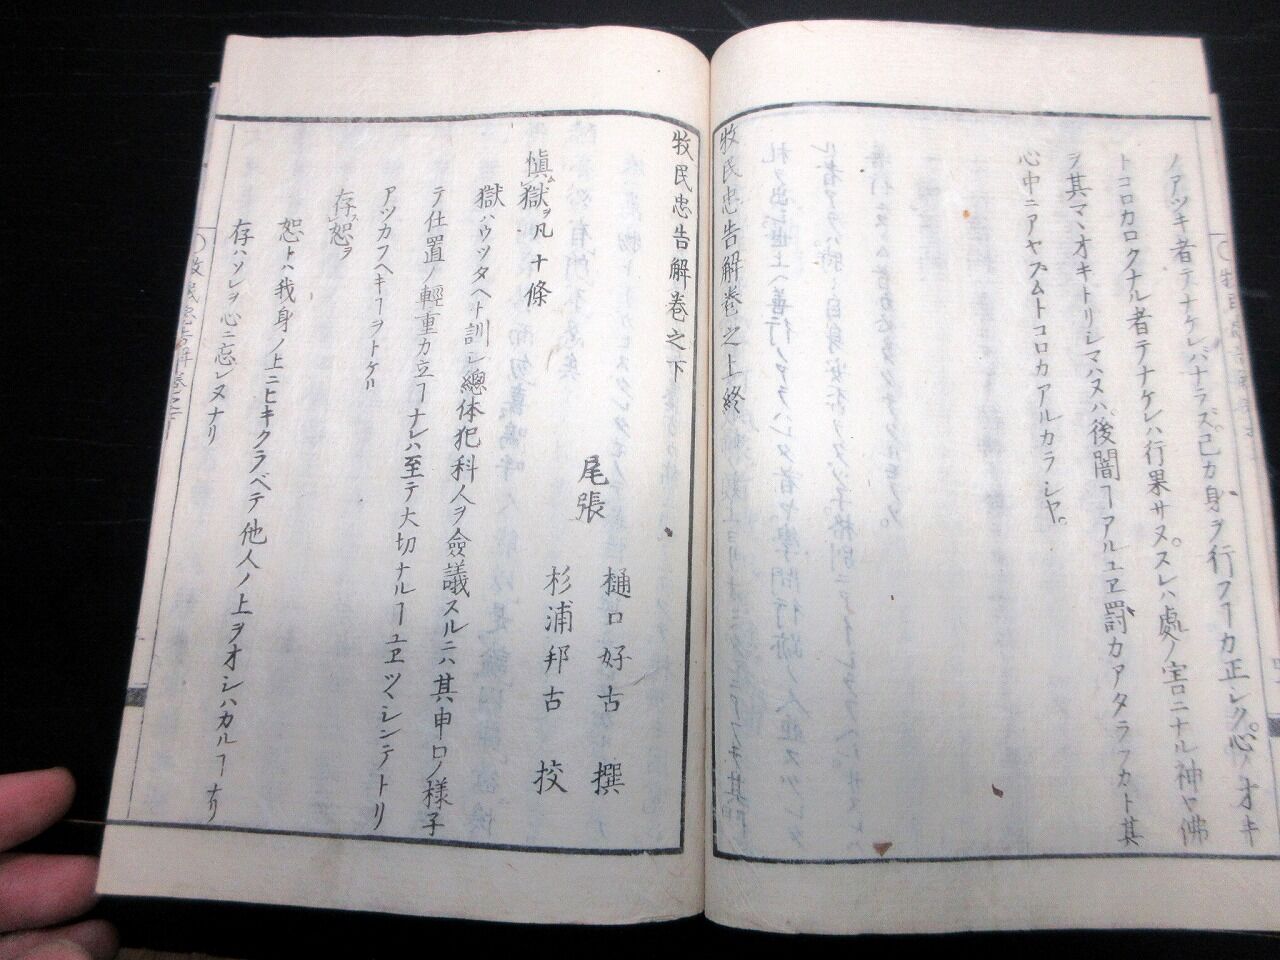 ノアツキ者テナケレバナラズ己カ身ヲ行フヿカ正シク心ノオキ
トコロカロクナル者テナケレハ行果サヌ。スレハ處ノ害ニナル神ヤ佛
ヲ其マヽオキトリシマハヌハ後闇ヿアルユヱ罰カアタラフカト其
心中ニアヤブムトコロカアルカラシヤ。
牧民忠告解巻之上終
牧民忠告解巻之下
尾張
樋口好古 撰
杉浦邦古 挍
愼獄ヲ凡十條
獄ハウツタヘト訓シ總体犯科人ヲ僉議スルニハ其申口ノ様子
テ仕置ノ輕重カ立ヿナレハ至テ大切ナルヿユヱツヽシンテトリ
アツカフヘキヿヲトケリ
存恕ヲ
恕トハ我身ノ上ニヒキクラベテ他人ノ上ヲオシハカルヿナリ
存ハソレヲ心ニ忘レヌナリ